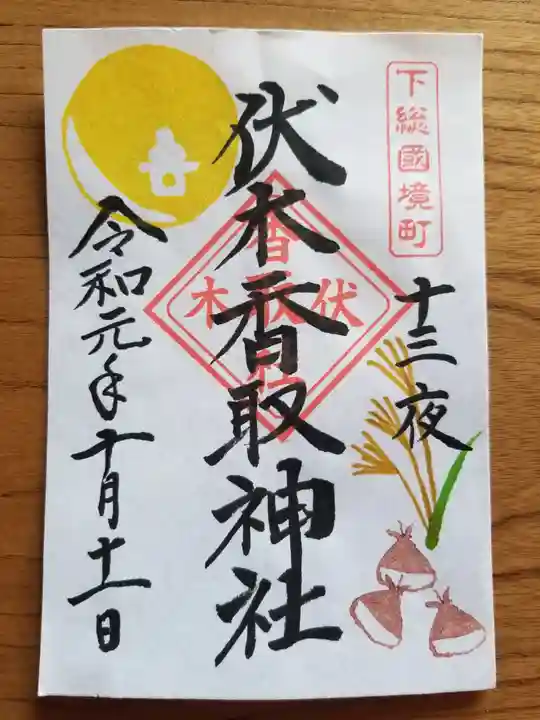 下総國境町
十三夜
伏木香取神社
伏木
令和元年十月十一日